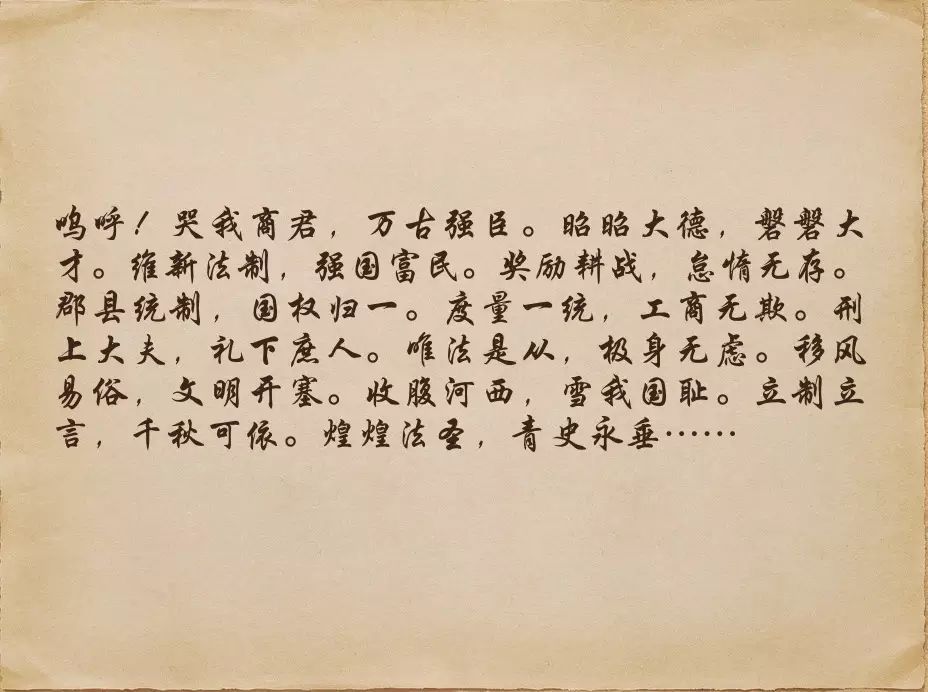 呜呼！哭我商君，万古强臣。昭昭大德，磐磐大
才。维新法制，强国富民。奖励耕战，怠惰无存。
郡县统制，国权归一。度量一统，工商无欺。刑
上大夫，礼下庶人。唯法是从，极身无虑。移风
易俗，文明开塞。收腹河西，雪我国耻。立制立
言，千秋可依。煌煌法圣，青史永垂……